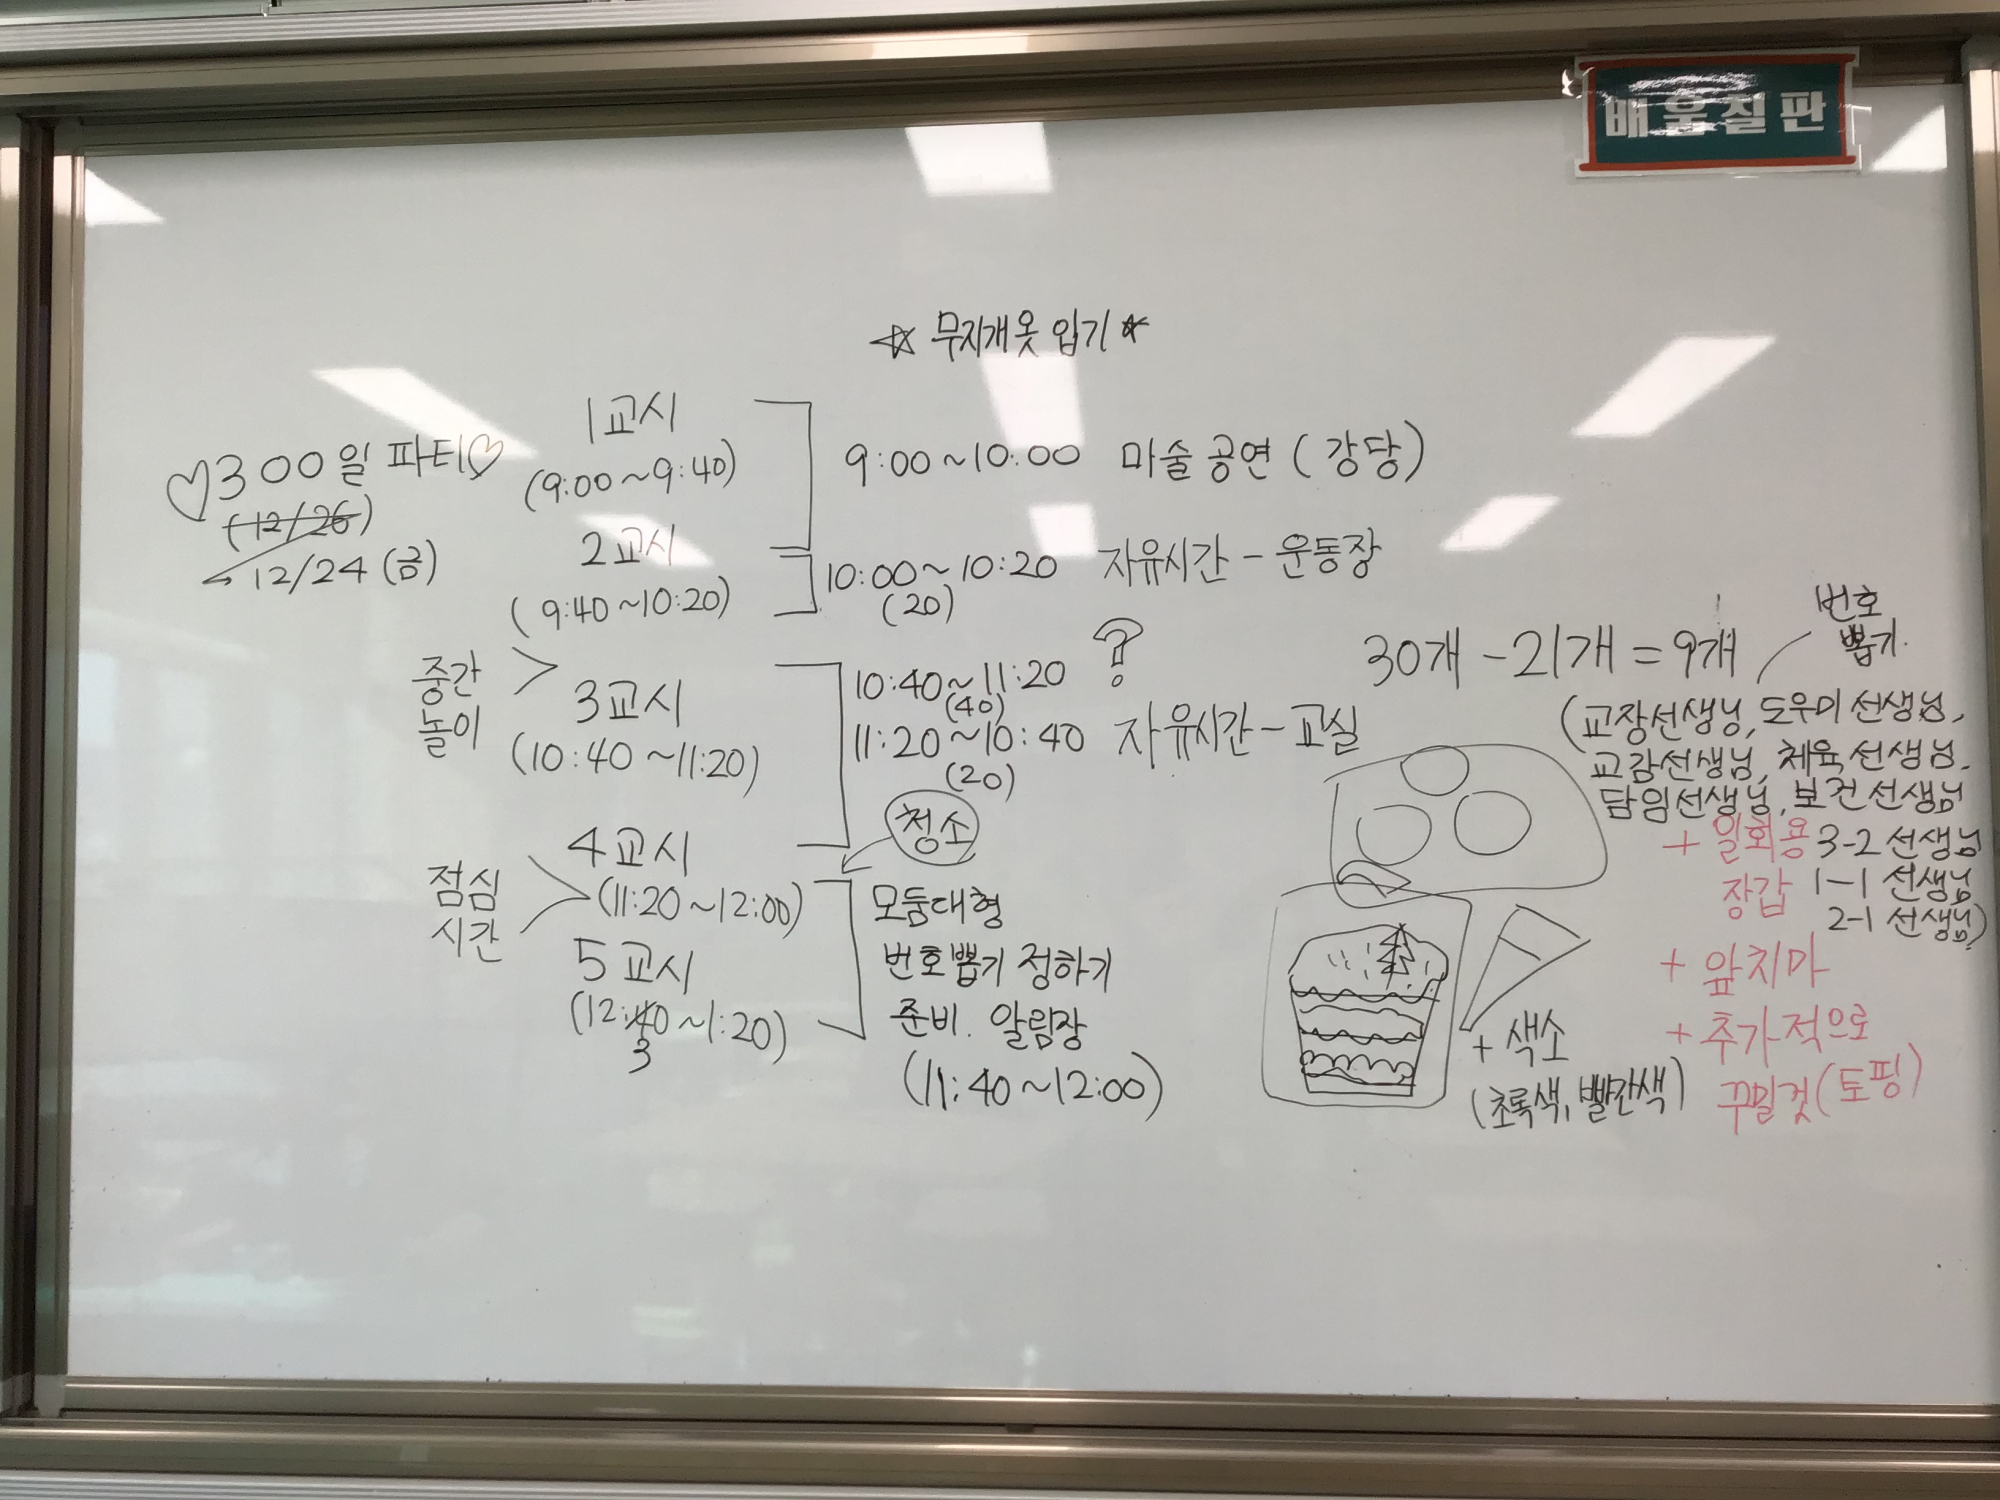 배움칠판
☆ 무지개옷 입기 ☆
♡300일 파티♡
(12/26)
→ 12/24 (금)
1교시
(9:00~9:40)
2교시
(9:40~10:20)
중간
놀이
3교시
(10:40~11:20)
4교시
(11:20~12:00)
점심
시간
5교시
(12:40~1:20)
3
9:00~10:00 마술공연 (강당)
10:00~10:20 자유시간 - 운동장
(20)
10:40~11:20 ?
(40)
11:20~10:40 자유시간 - 교실
(20)
청소
모둠대형
번호뽑기 정하기
준비. 알림장
(11:40~12:00)
30개 - 21개 = 9개
번호
뽑기.
(교장선생님, 도우미선생님,
교감선생님, 체육선생님.
담임선생님, 보건선생님
3-2 선생님
1-1 선생님
2-1 선생님)
+ 일회용
장갑
+ 앞치마
+ 추가적으로
꾸밀것(토핑)
+ 색소
(초록색, 빨간색)